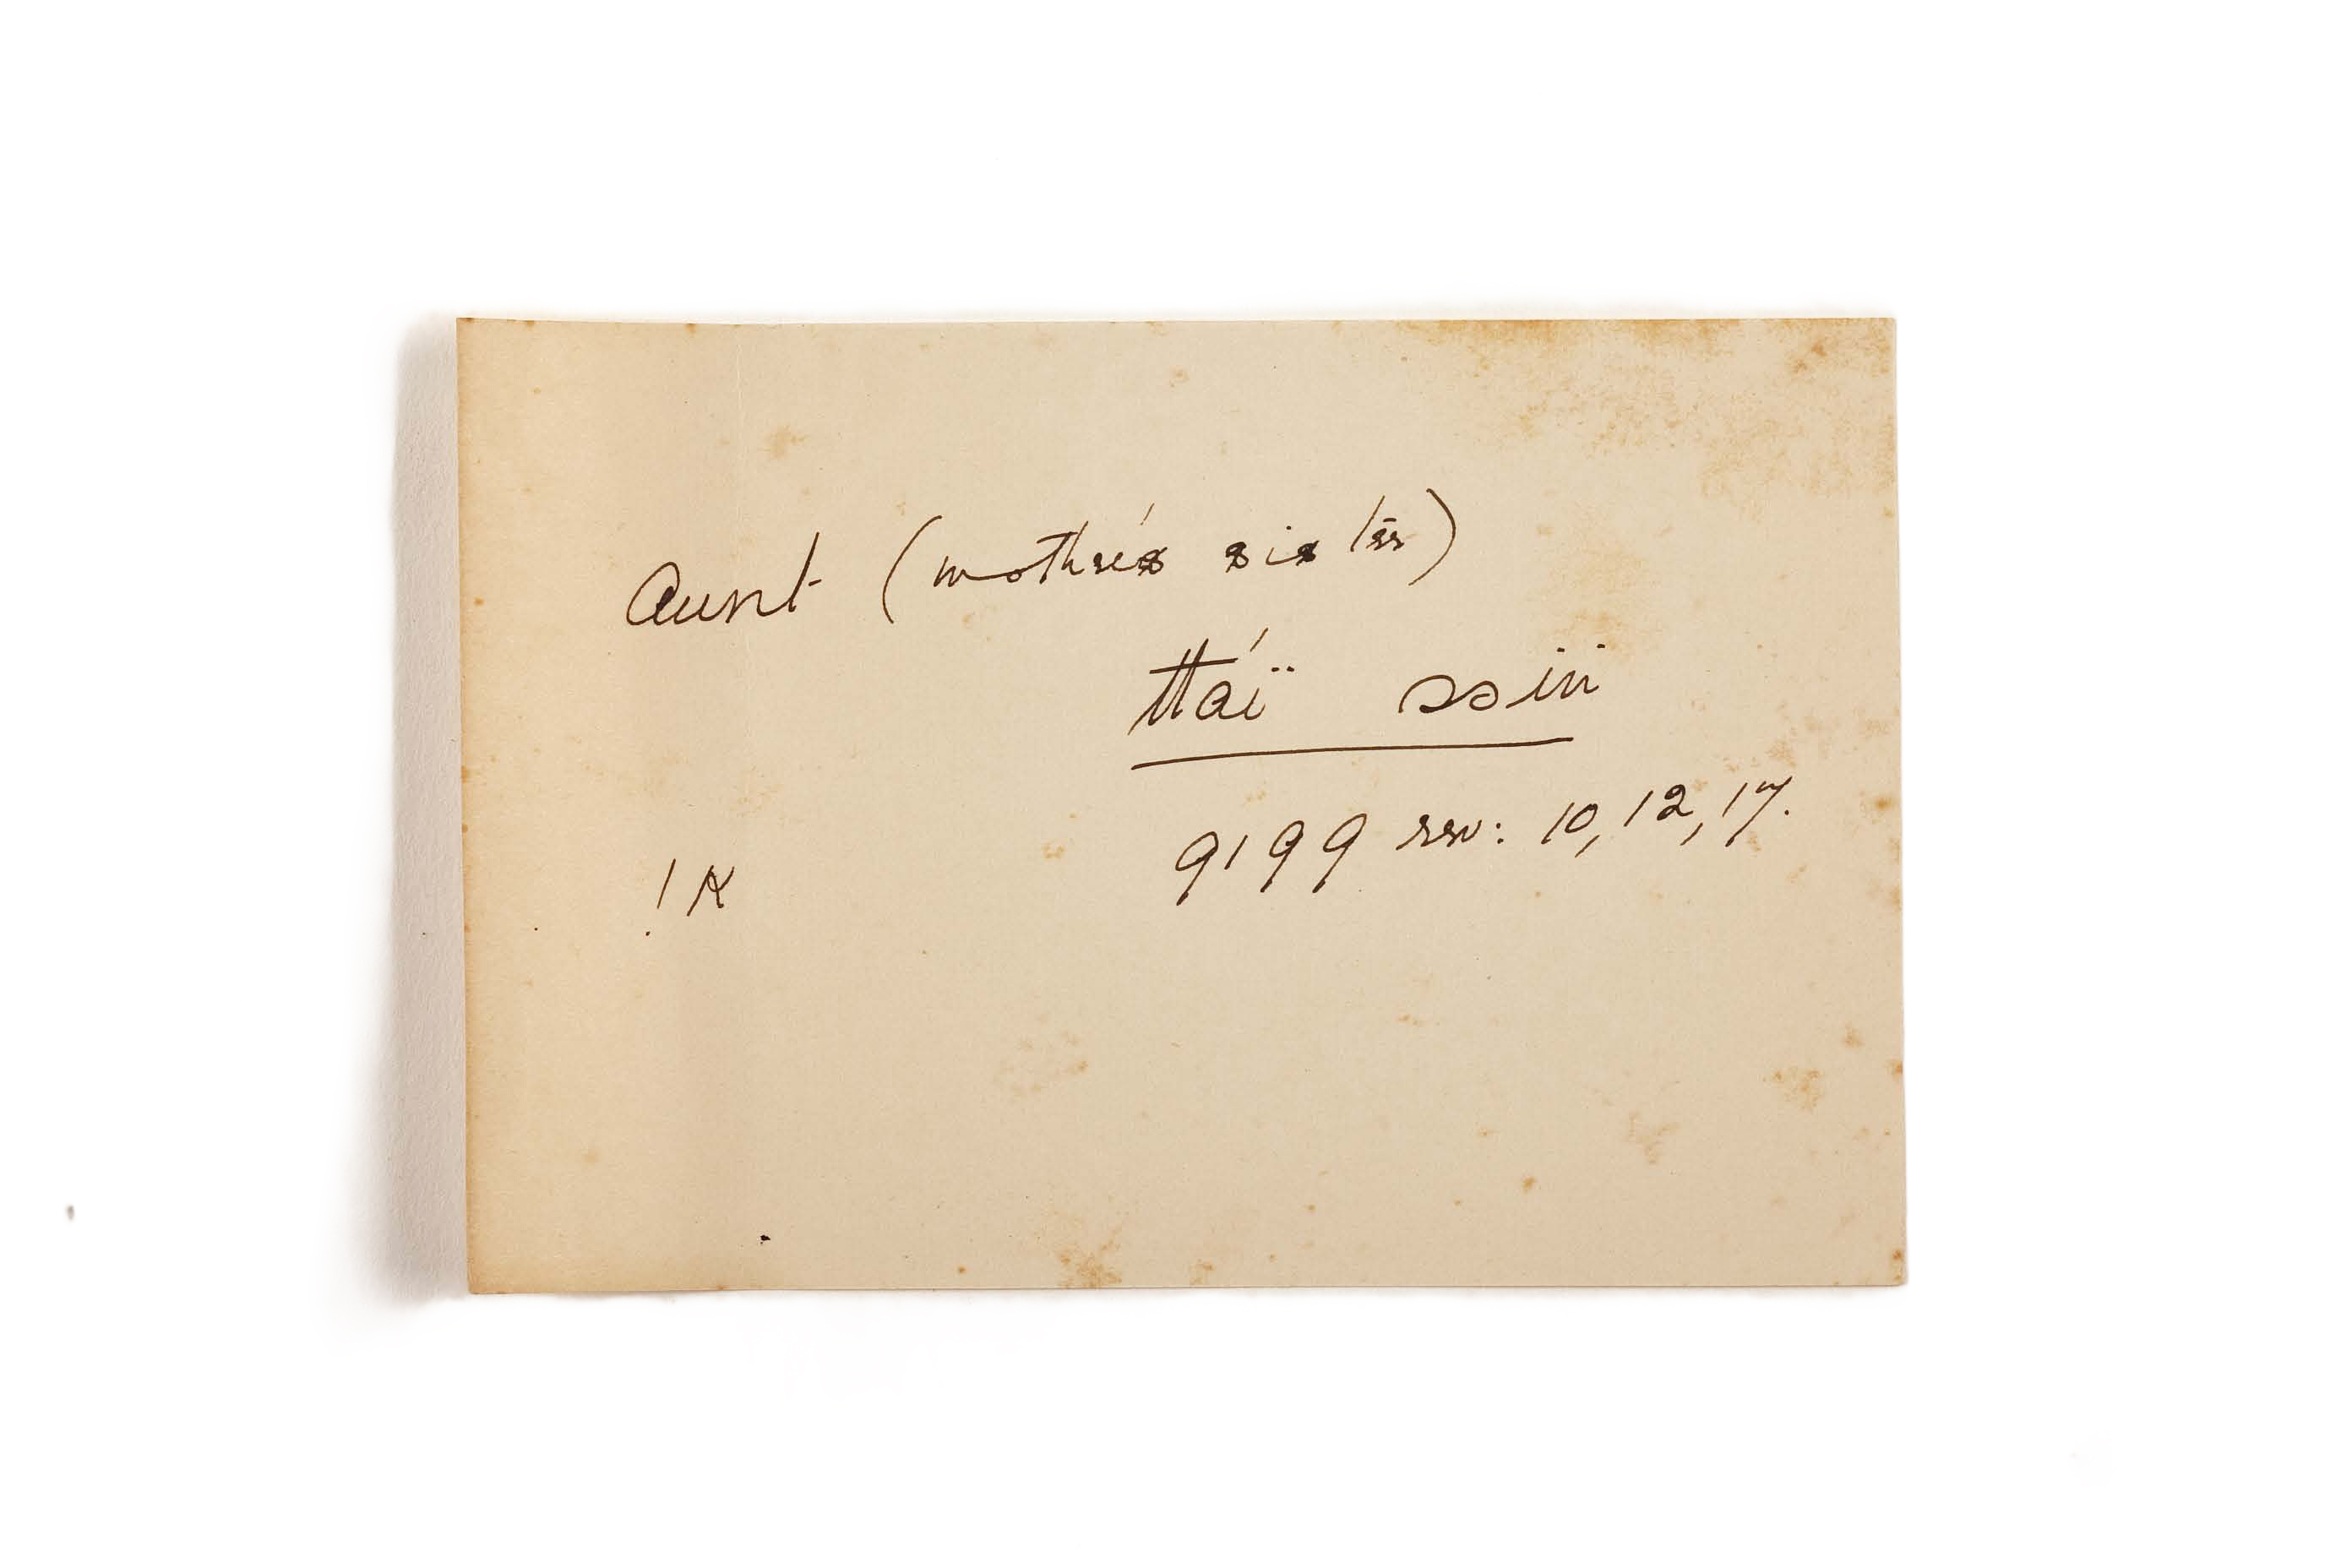 Aunt (mother's sister)
ttáï ssin
!K 9199 rev: 10, 12, 17.